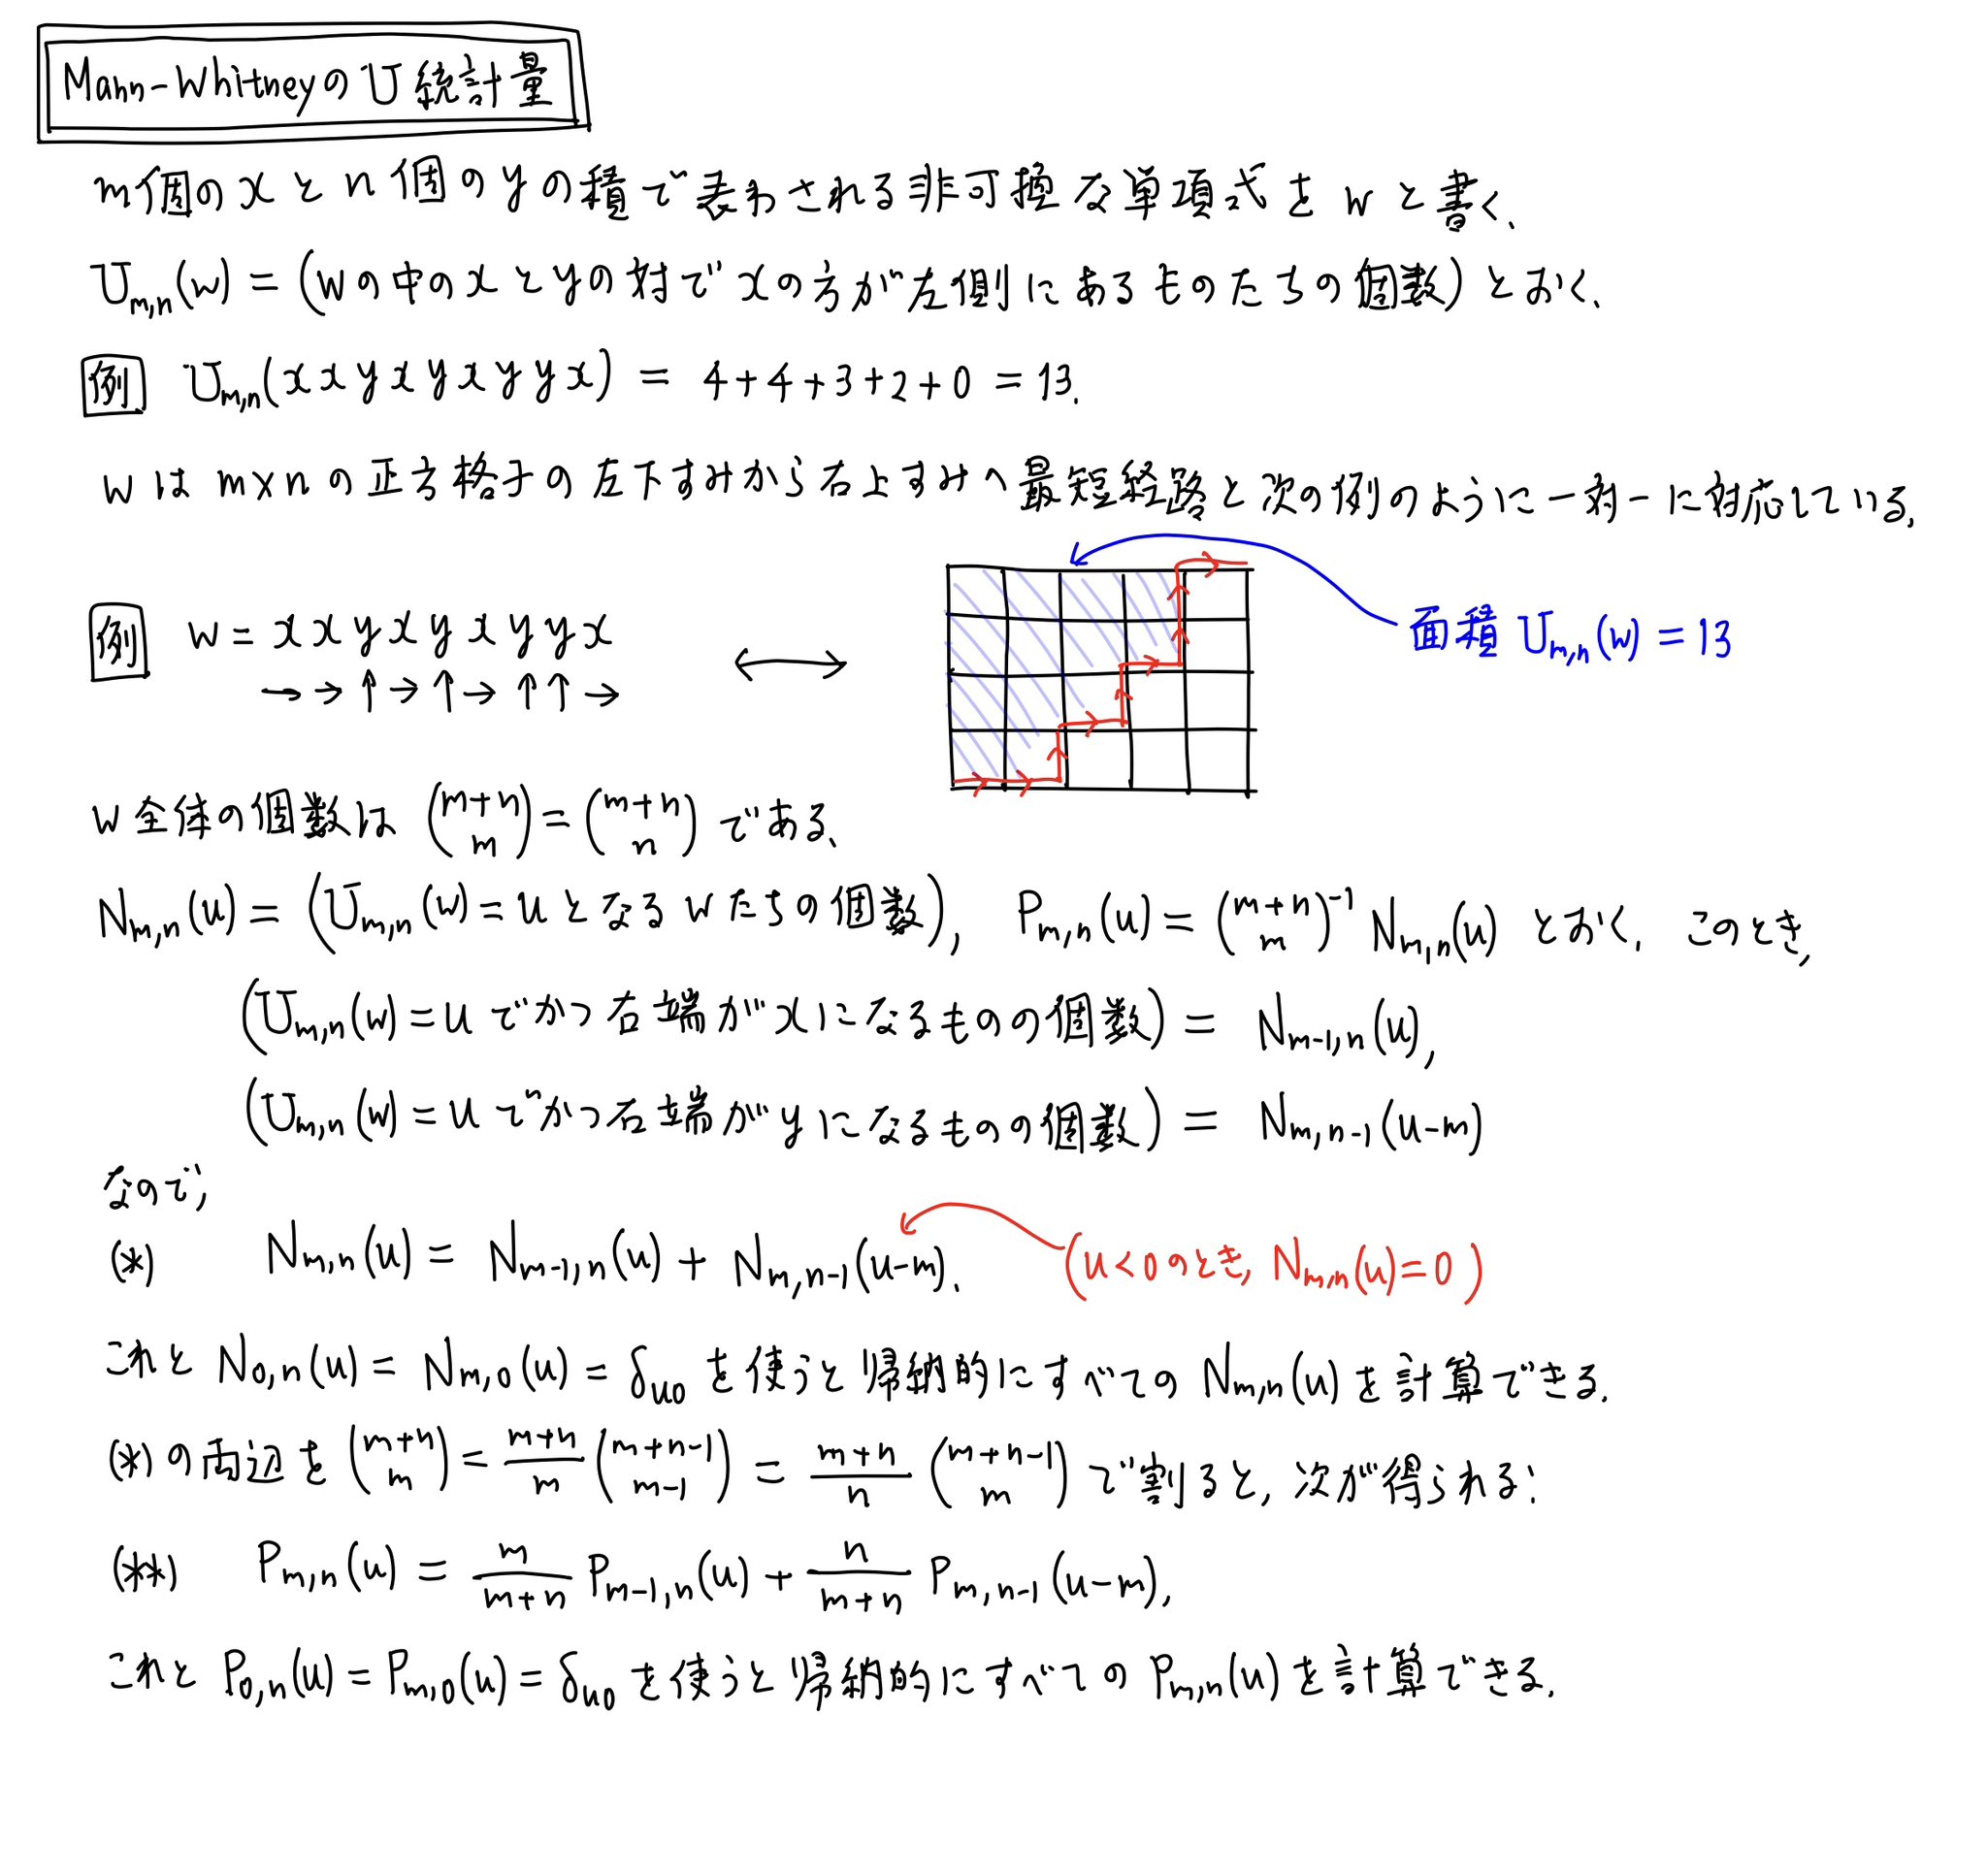 Mann-WhitneyのU統計量
m個のxとn個のyの積で表わされる非可換な単項式をwと書く.
U_{m,n}(w) = (wの中のxとyの対でxの方が左側にあるものたちの個数)とおく.
例 U_{m,n}(xxyxyxyyx) = 4+4+3+2+0 = 13.
wはm×nの正方格子の左下すみから右上すみへ最短経路と次の例のように一対一に対応している.
例 w = xxyxyxyyx
→→↑→↑→↑↑→
↔
面積 U_{m,n}(w) = 13
w全体の個数は \binom{m+n}{m} = \binom{m+n}{n} である.
N_{m,n}(u) = (U_{m,n}(w) = u となるwたちの個数), P_{m,n}(u) = \binom{m+n}{m}^{-1} N_{m,n}(u) とおく. このとき,
(U_{m,n}(w) = u でかつ右端がxになるものの個数) = N_{m-1,n}(u),
(U_{m,n}(w) = u でかつ右端がyになるものの個数) = N_{m,n-1}(u-m)
なので,
(*) N_{m,n}(u) = N_{m-1,n}(u) + N_{m,n-1}(u-m). (u<0のとき, N_{m,n}(u)=0)
これと N_{0,n}(u) = N_{m,0}(u) = δ_{u0} を使うと帰納的にすべての N_{m,n}(u) を計算できる.
(*)の両辺を \binom{m+n}{m} = \frac{m+n}{m} \binom{m+n-1}{m-1} = \frac{m+n}{n} \binom{m+n-1}{m} で割ると, 次が得られる:
(**) P_{m,n}(u) = \frac{m}{m+n} P_{m-1,n}(u) + \frac{n}{m+n} P_{m,n-1}(u-m),
これと P_{0,n}(u) = P_{m,0}(u) = δ_{u0} を使うと帰納的にすべての P_{m,n}(u) を計算できる.